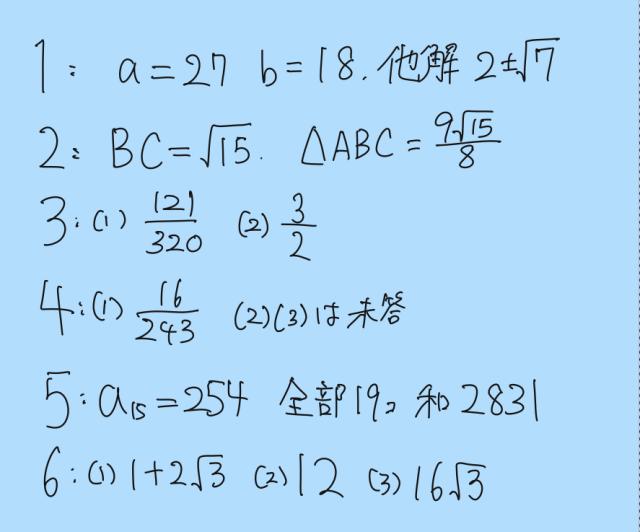 1: a=27 b=18. 他解 2±√7
2: BC=√15. △ABC=9√15/8
3: (1) 121/320 (2) 3/2
4: (1) 16/243 (2)(3)は未答
5: a₁₅=254 全部19。和2831
6: (1) 1+2√3 (2) 12 (3) 16√3